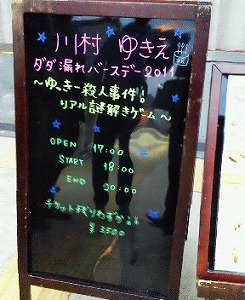 川村 ゆきえ
ダダ漏れバースデー2011
〜ゆっきー殺人事件!
リアル謎解きゲーム〜
OPEN 17:00
START 18:00
END 20:00
チケット残りわずか!!
¥3500